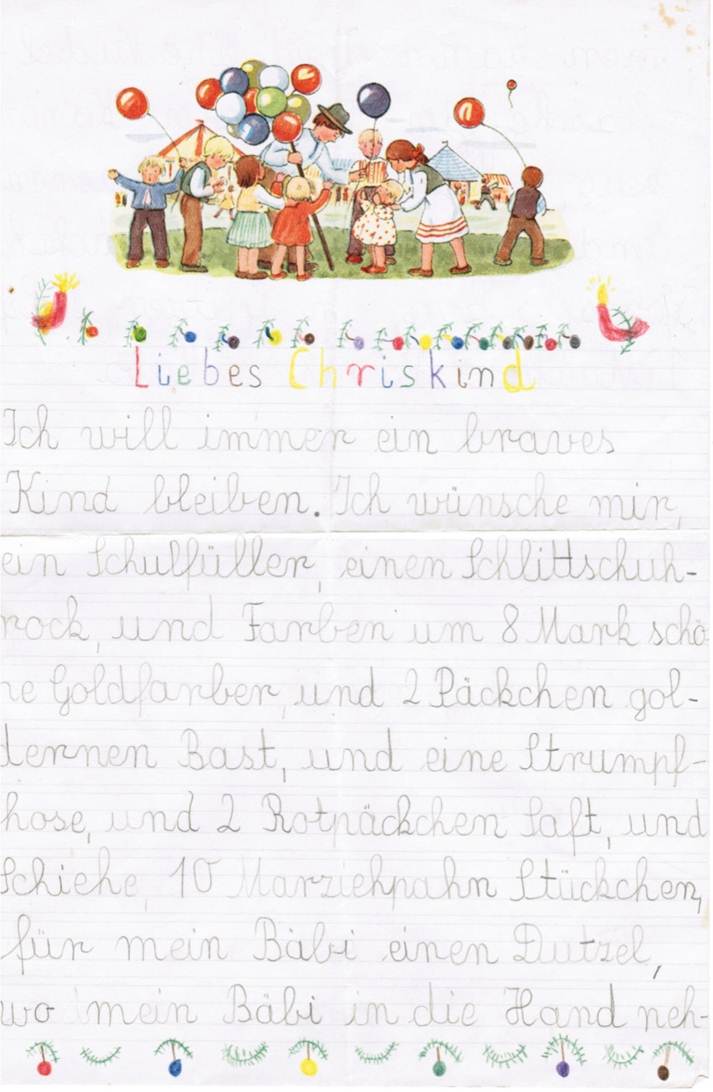 Liebes Chriskind
Ich will immer ein braves
Kind bleiben. Ich wünsche mir,
ein Schulfüller, einen Schlittschuh-
rock, und Farben um 8 Mark schö
ne Goldfarber, und 2 Päckchen gol-
dernen Bast, und eine Strumpf-
hose, und 2 Rotpäckchen Saft, und
Schiehe, 10 Marziehpahn Stückchen,
für mein Bäbi einen Dutzel,
wo mein Bäbi in die Hand neh-